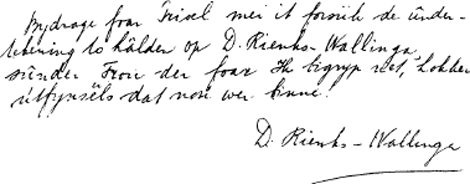 Bydrage foar Frisel mei it forsiik de ûnder-
tekening to hâlden op D. Rienks-Wallinga,
sûnder Frou der foar. Ik bigryp net, hokker
útfynsels dat nou wer binne!
D. Rienks-Wallinga